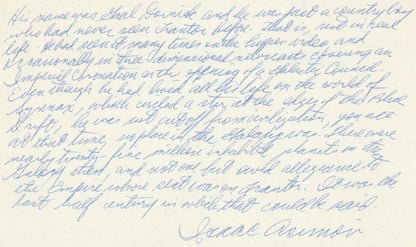 His name was Gaal Dornick and he was just a country boy
who had never seen Trantor before. That is, not in real
life. He had seen it many times on the hyper-video, and
occasionally in three-dimensional newscasts covering an
Imperial Coronation or the opening of a Galactic Council.
Even though he had lived all his life on the world of
Synnax, which circled a star at the edges of the Blue
Drift, he was not cut off from civilization, you see.
At that time, no place in the Galaxy was. There were
nearly twenty-five million inhabited planets in the
Galaxy then, and not one but owed allegiance to
the Empire whose seat was on Trantor. It was the
last half-century in which that could be said.
Isaac Asimov